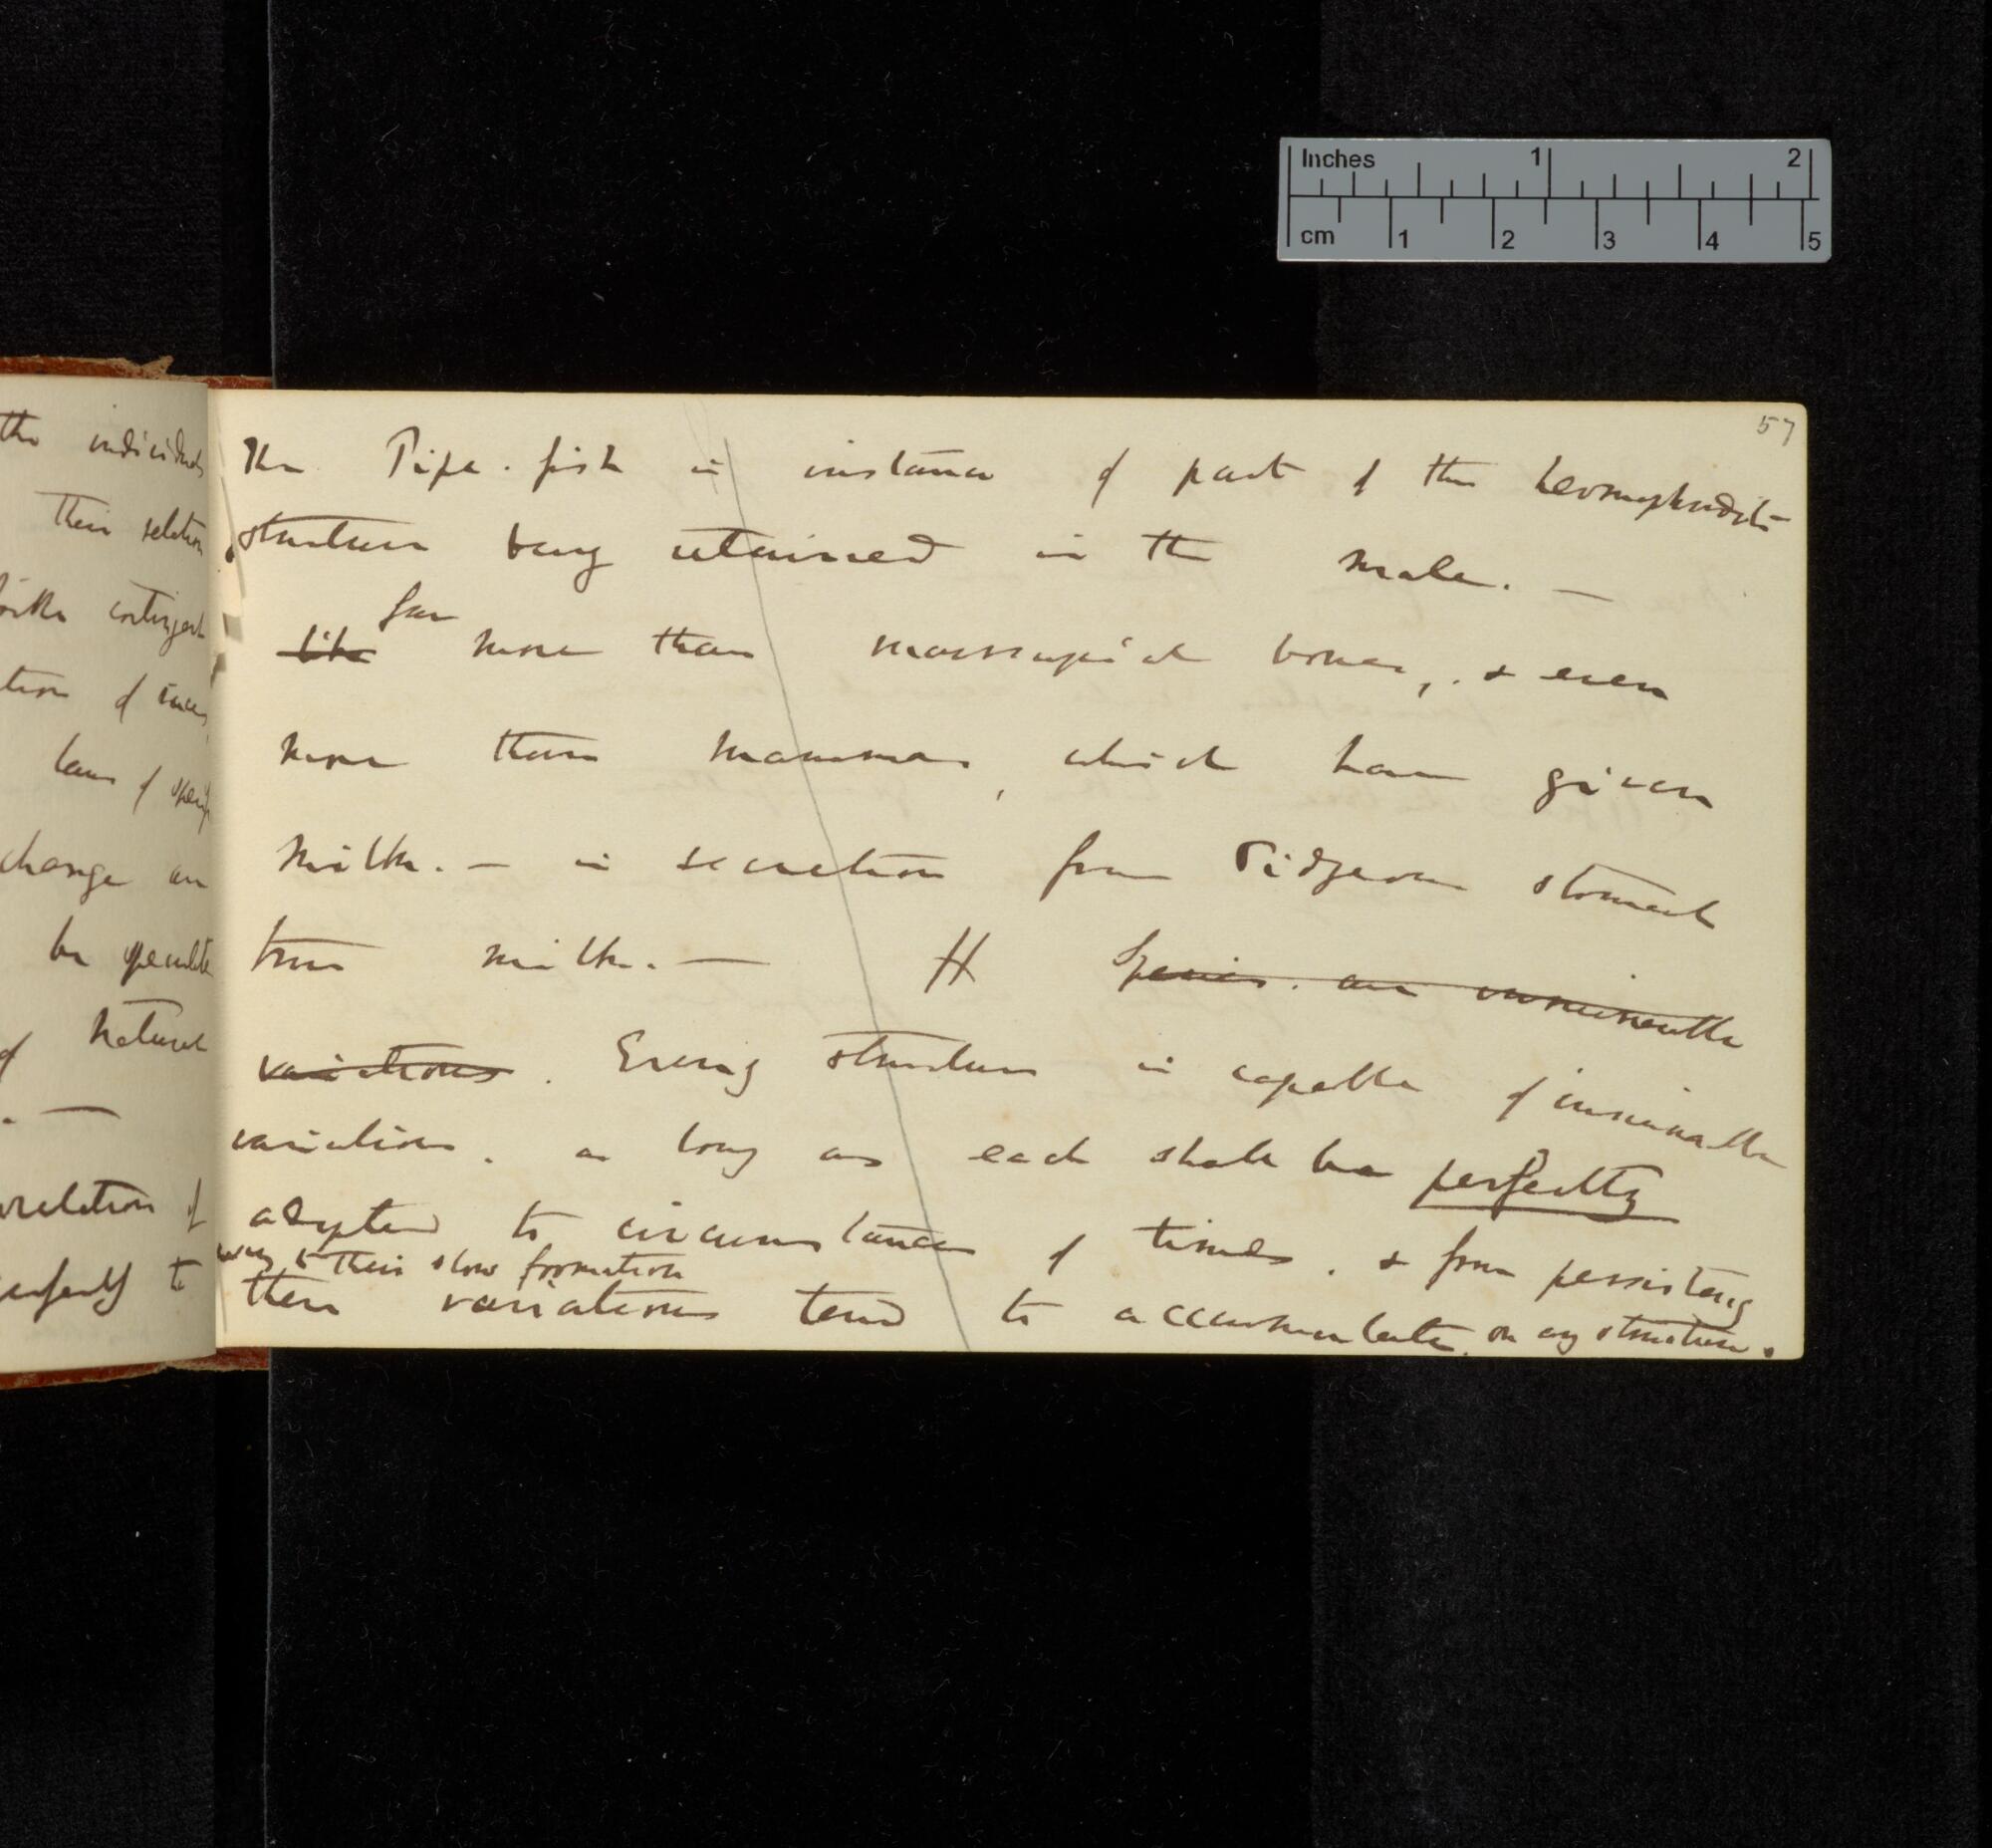 the individuals
Their relation
contingent
tion of
laws of
change are
be
of Nature
. —
relation of
perfectly to
57
The Pipe-fish is instance of part of the hermaphrodite
structure being retained in the male. —
far
like more than marsupial bones, & even
more than mammae, which have given
milk. — is secretion from Pidgeon stomach
true milk. — H Species. are innumerable
variations. Every structure is capable of innumerable
variations. as long as each shall be perfectly
adapted to circumstances of times. & from persistency
owing to their slow formation
these variations tend to accumulate on any structure.
Inches 1 2
cm 1 2 3 4 5